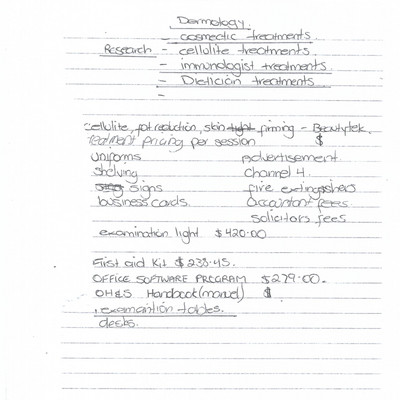 Dermology
- cosmectic treatments.
Research - cellulite treatments.
- immunologist treatments.
- Dietician treatments
-
cellulite, fat reduction, skin tight firming - Beautytek.
treatment pricing per session $
uniforms advertisement
shelving channel 4.
signs fire extingushers
business cards. accountant fees.
solicitors fees
examination light $420.00
First aid Kit $238.45.
OFFICE SOFTWARE PROGRAM $279.00.
OH&S Handbook (manuel) $
. examaintion tables.
desks.